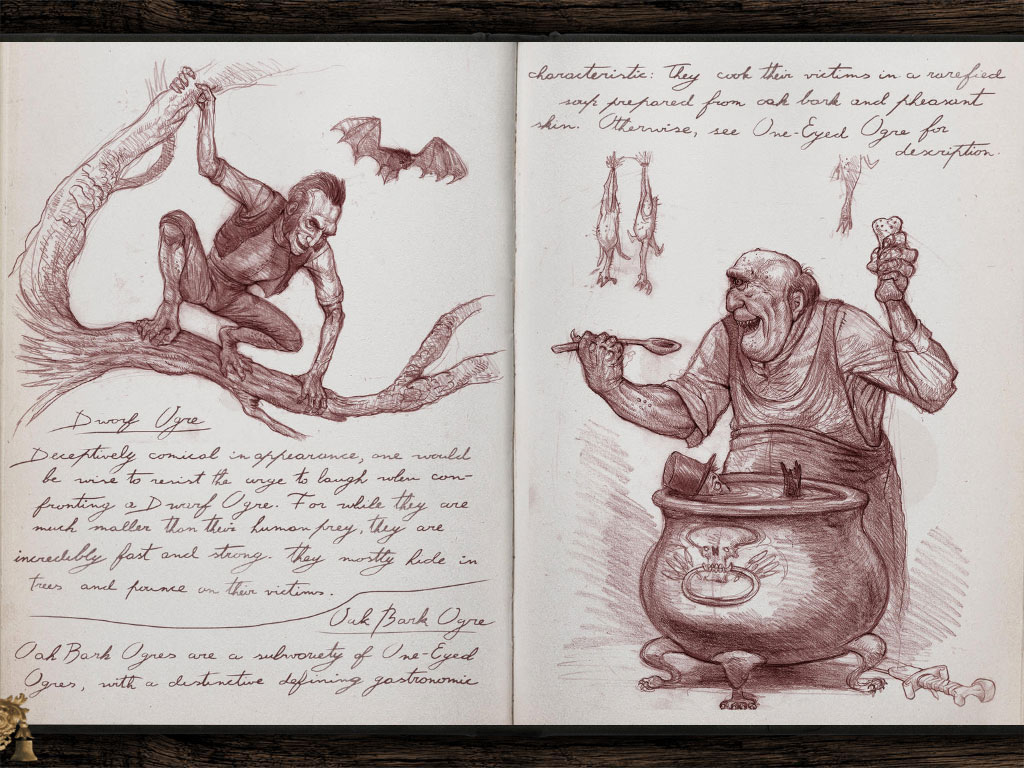 Dwarf Ogre
Deceptively comical in appearance, one would
be wise to resist the urge to laugh when con-
fronting a Dwarf Ogre. For while they are
much smaller than their human prey, they are
incredibly fast and strong. They mostly hide in
trees and pounce on their victims.
Oak Bark Ogre
Oak Bark Ogres are a subvariety of One-Eyed
Ogres, with a distinctive defining gastronomic
characteristic: They cook their victims in a rarefied
soup prepared from oak bark and pheasant
skin. Otherwise, see One-Eyed Ogre for
description.